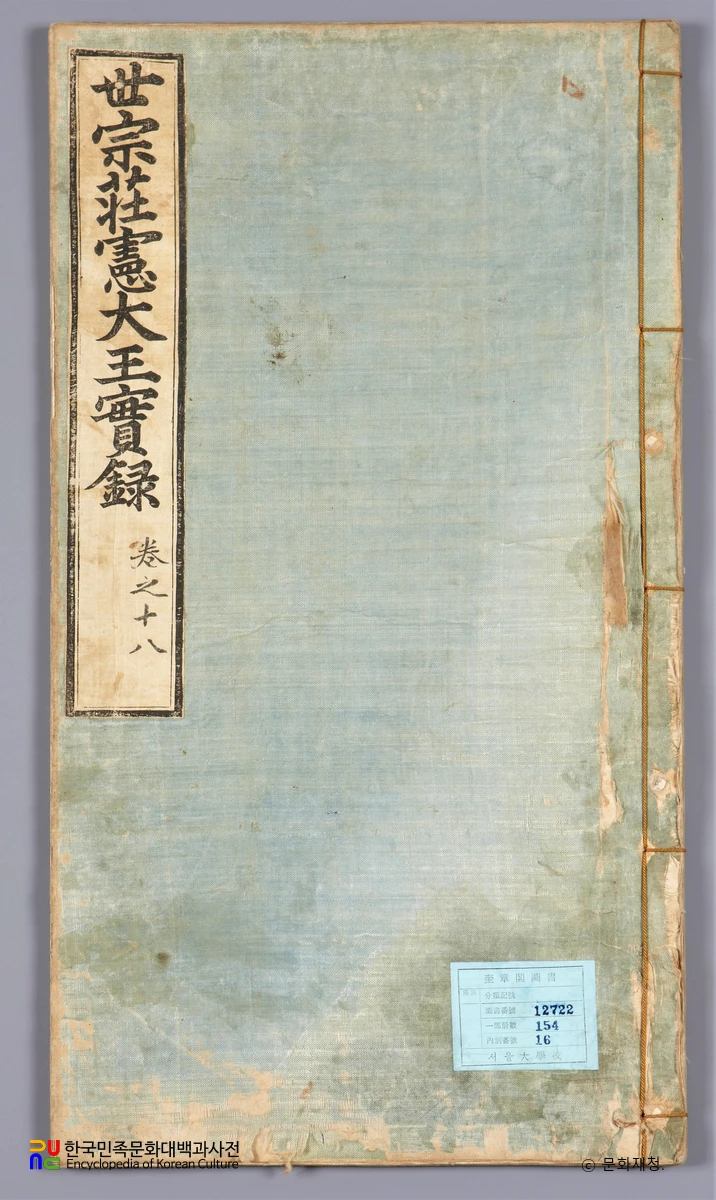 世宗莊憲大王實録
卷之十八
奎章閣圖書
分類記號
圖書番號 12722
一部冊數 154
內別番號 16
서울大學校
한국민족문화대백과사전
Encyclopedia of Korean Culture
© 문화재청.